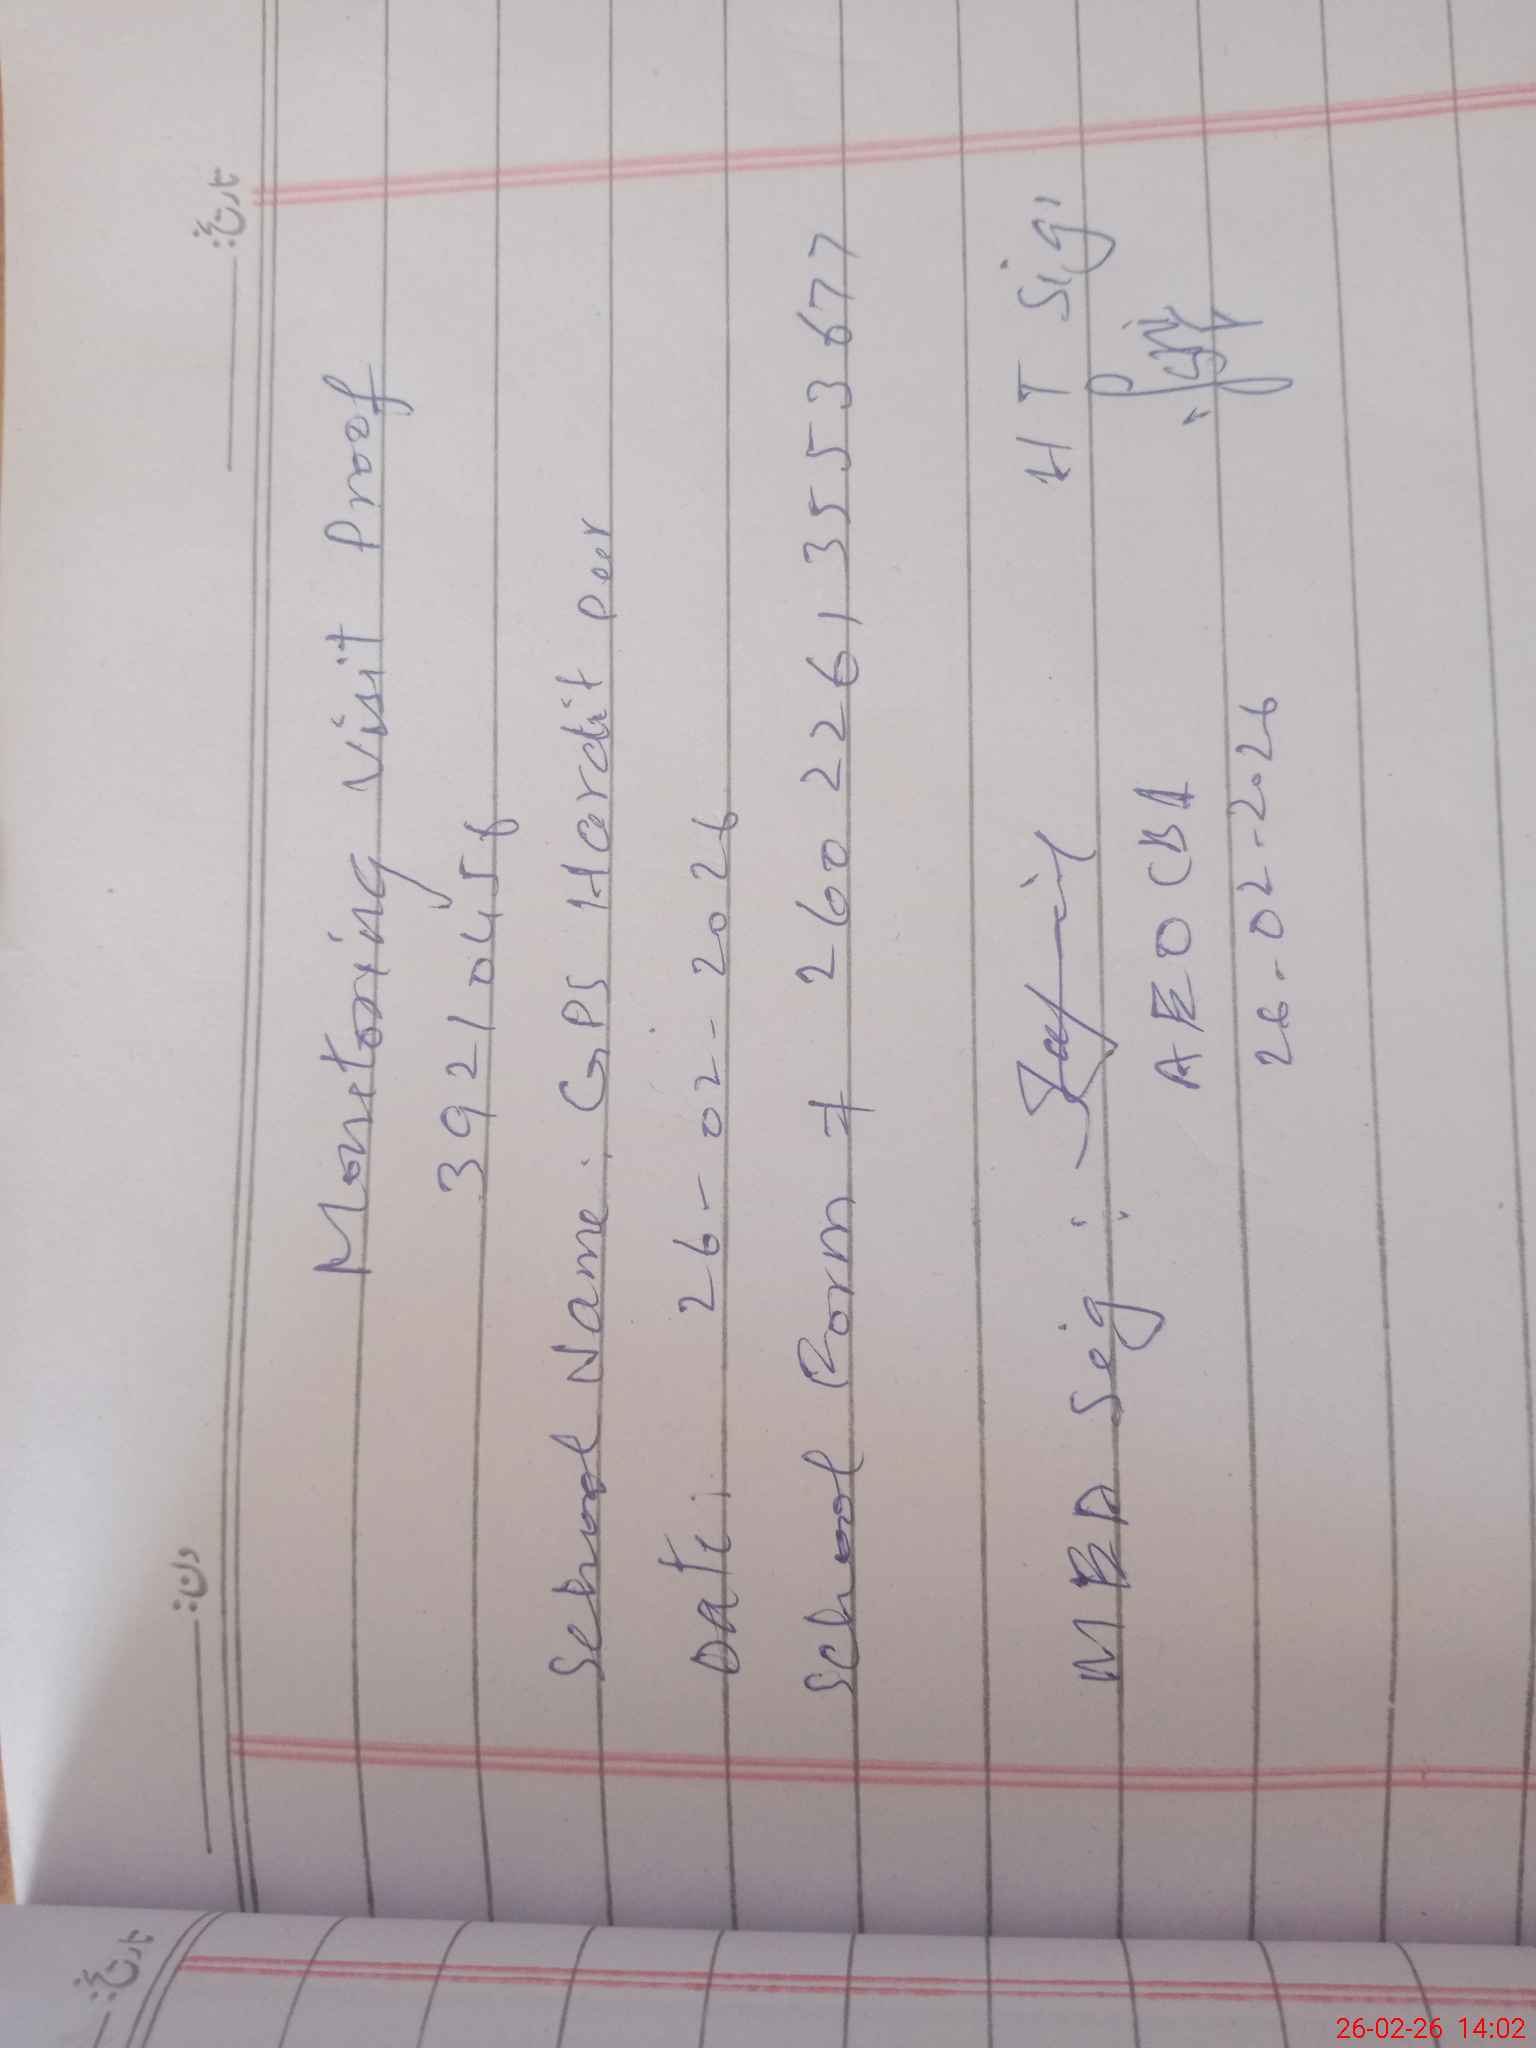 دن: تاریخ:
Monitoring Visit Proof
39210456
School Name: GPS Hardit Peer
Date: 26-02-2026
School Form # 2602261355367​7
MEA Seig: HT Sig:
AEO CBA
26-02-2026
تاریخ:
26-02-26 14:02